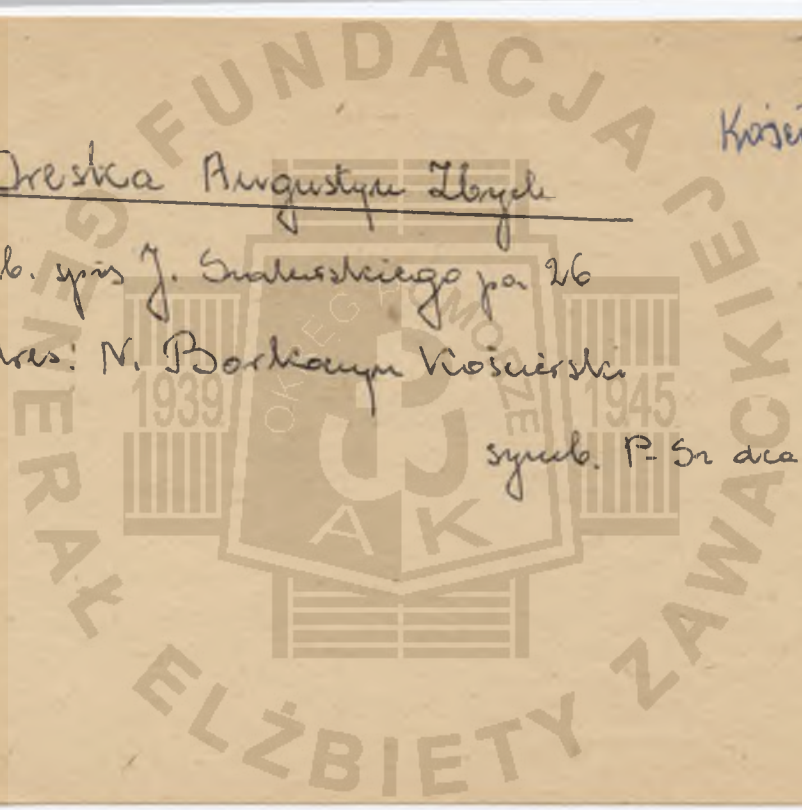 Kości
Dreska Augustyn Zbych
b. spis J. Szalewskiego pa 26
N. Borkowym Kościerski
symb. P-Sn dca
FUNDACJA GENERAŁ ELŻBIETY ZAWACKIEJ
OKRĘG POMORZE
1939
1945
AK